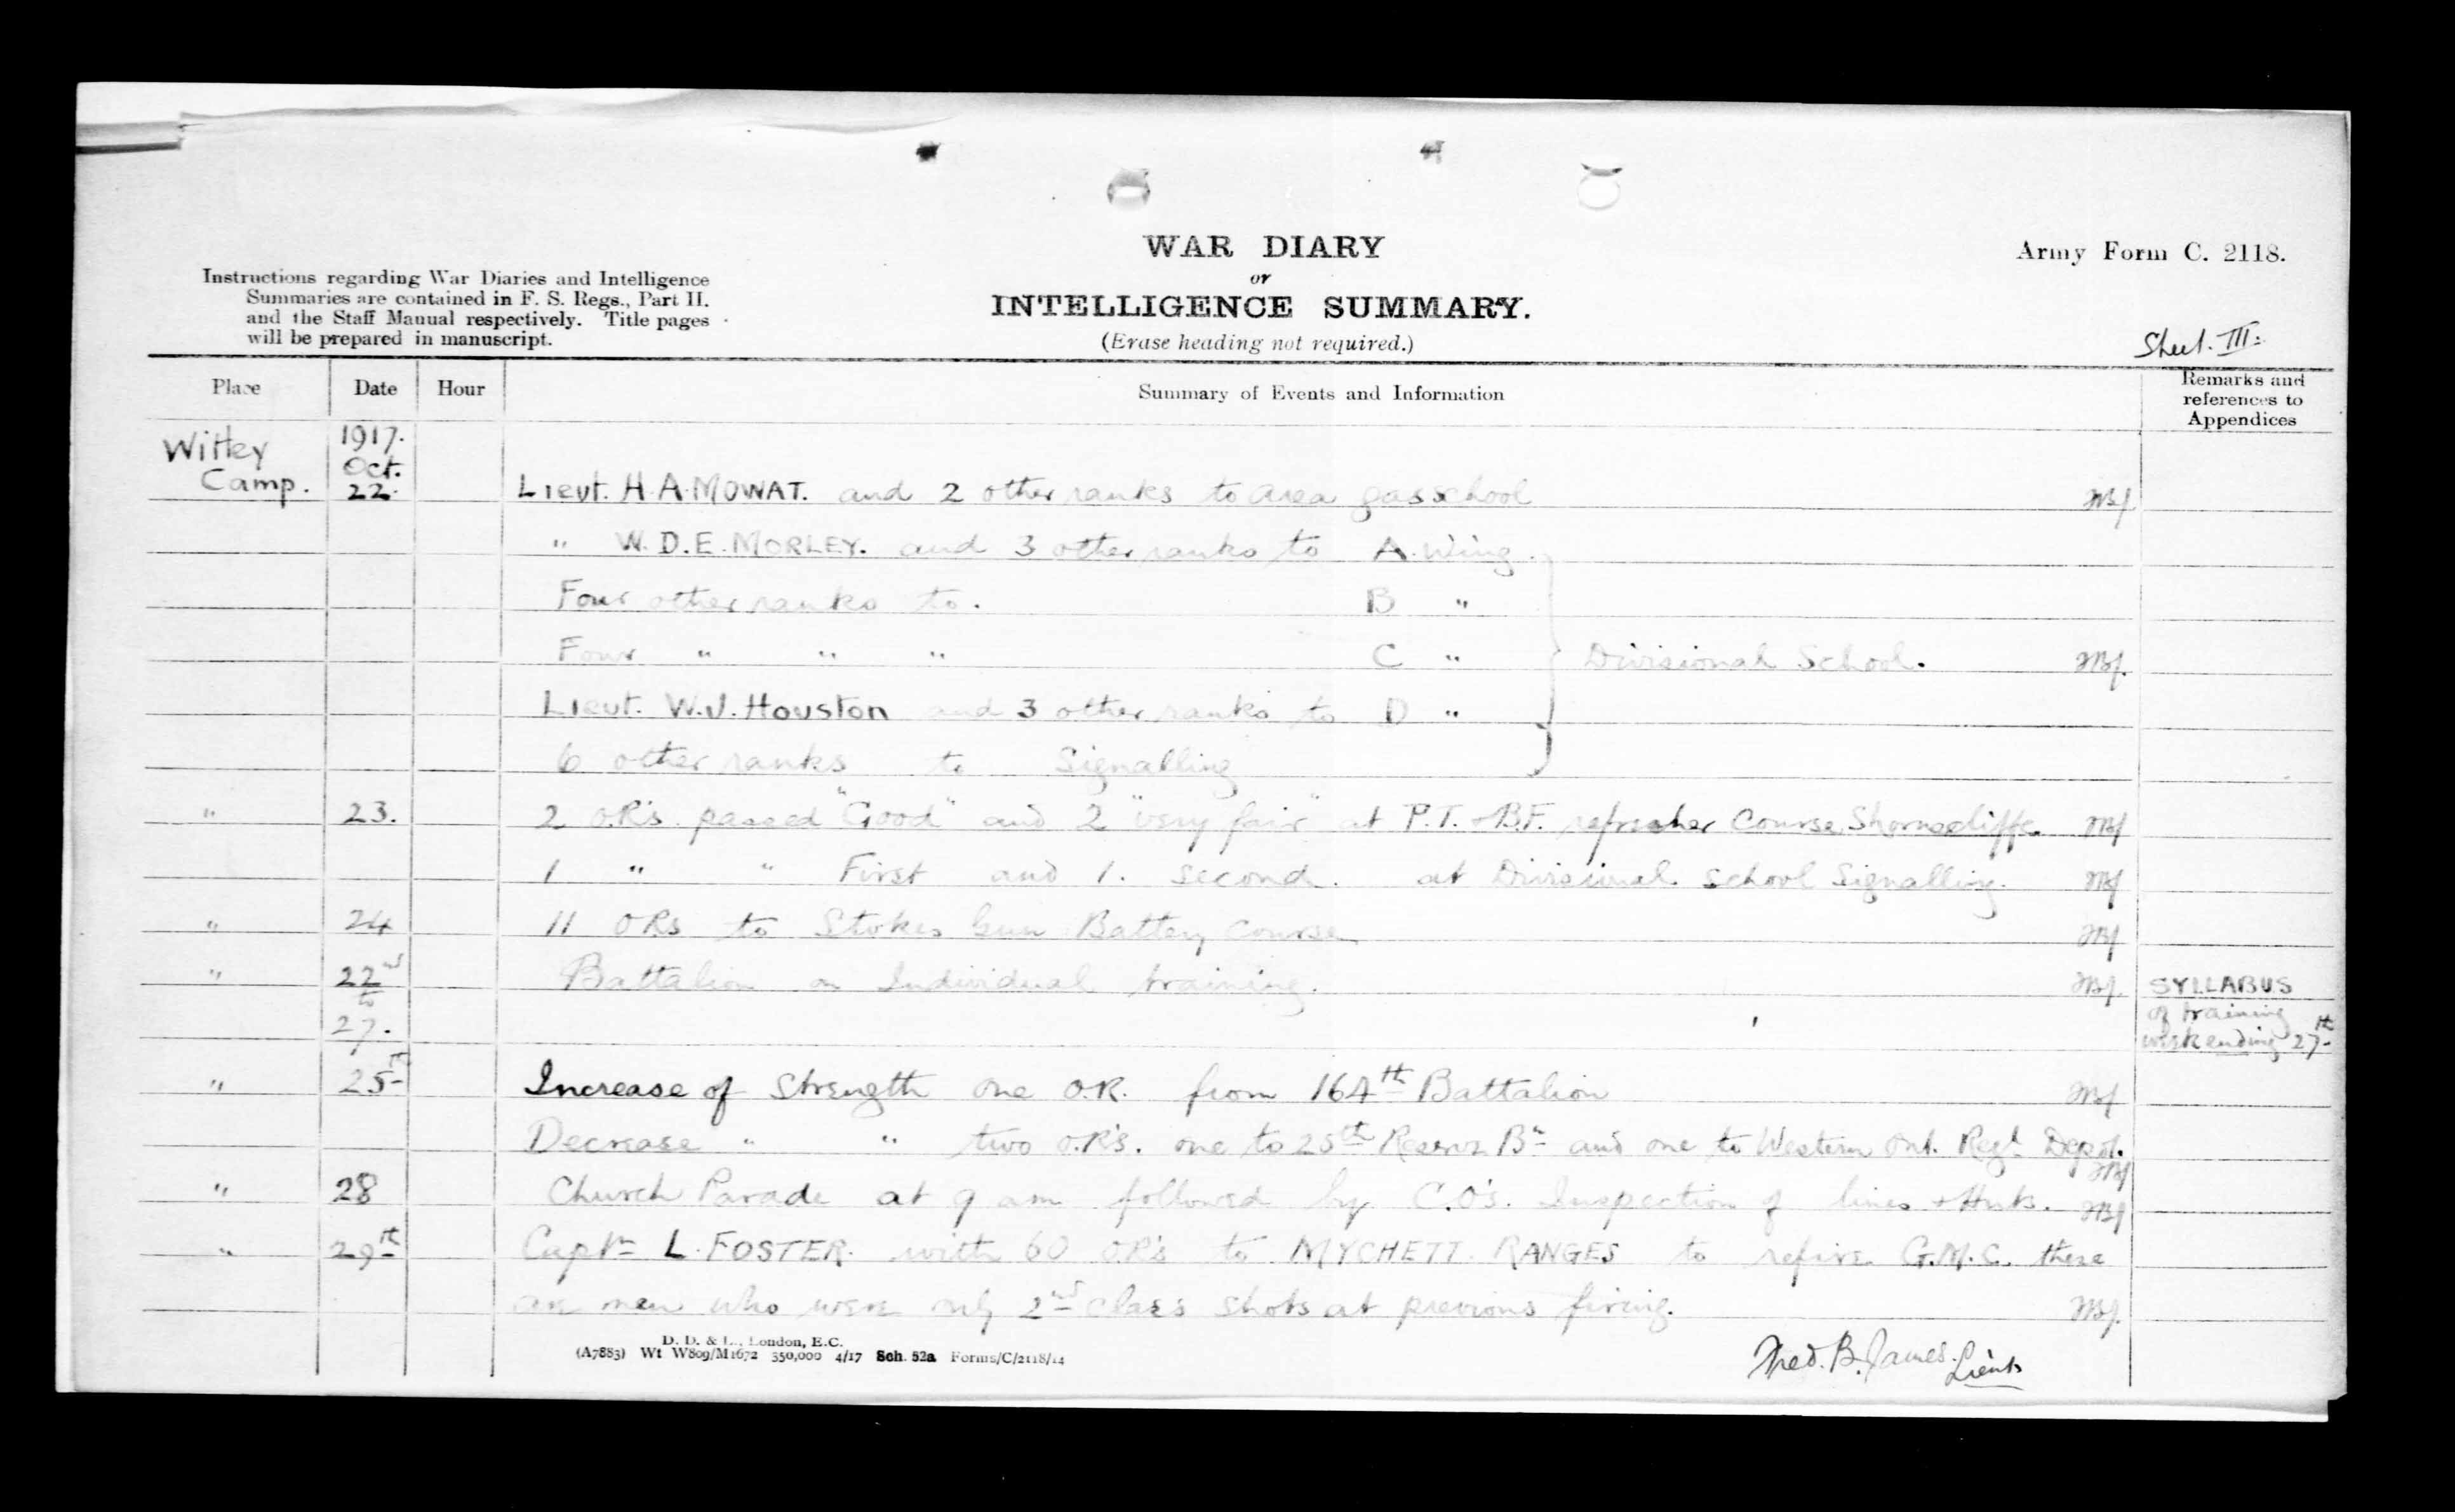 WAR DIARY
or
INTELLIGENCE SUMMARY.
(Erase heading not required.)
Army Form C. 2118.
Instructions regarding War Diaries and Intelligence
Summaries are contained in F. S. Regs., Part II.
and the Staff Manual respectively. Title pages
will be prepared in manuscript.
Sheet. III.
Place Date Hour Summary of Events and Information Remarks and references to Appendices
Witley Camp. 1917. Oct. 22. Lieut. H.A. MOWAT. and 2 other ranks to area gas school
" W. D. E. MORLEY. and 3 other ranks to A. Wing.
Four other ranks to. B "
Four " " " C " Divisional School.
Lieut. W.J. Houston and 3 other ranks to D "
6 other ranks to Signalling
" 23. 2 O.R's. passed "Good" and 2 "very fair" at P.T. & B.F. refresher Course Shorncliffe.
1 " " First and 1. second. at Divisional School Signalling.
" 24 11 ORs to Stokes Gun Battery Course
" 22nd to 27. Battalion on Individual training. SYLLABUS
of training
week ending 27th
" 25th Increase of Strength one O.R. from 164th Battalion
Decrease " " two O.R's. one to 25th Reserve Bn and one to Western Ont. Regt. Depot.
" 28 Church Parade at 9 am followed by C.O's. Inspection of lines + Huts.
" 29th Captn L. FOSTER. with 60 O.R's to MYCHETT RANGES to refire G.M.C. these
are men who were only 2nd class shots at previous firing.
Fred. B. James. Lieut
D. D. & L., London, E.C.
(A7883) Wt W809/M1672 350,000 4/17 Sch. 52a Forms/C/2118/14